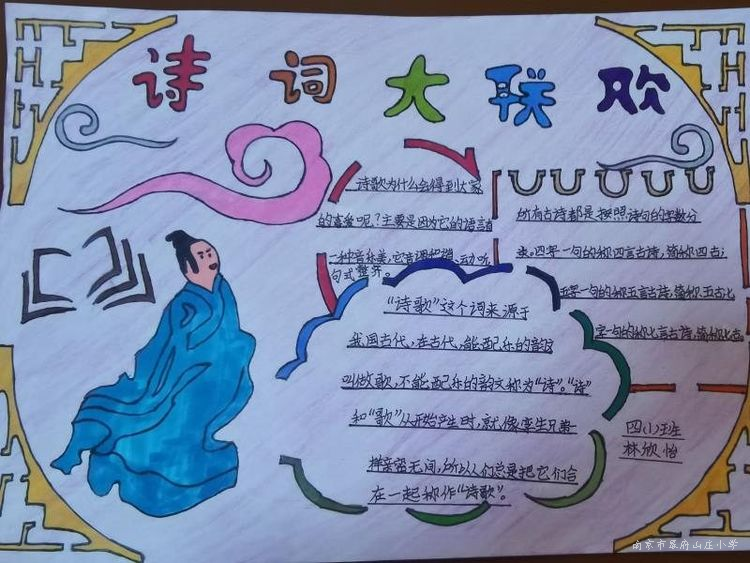 诗词大联欢
诗歌为什么会得到大家
的喜爱呢?主要是因为它的语言有
一种音乐美,它音调和谐、
句式整齐。
所有古诗都是按照诗句的字数分
类。四字一句的称四言古诗,简称四古;
五字一句的称五言古诗,简称五古;七
字一句的称七言古诗,简称七古。
“诗歌”这个词来源于
我国古代,在古代,能配乐的韵文
叫做歌,不能配乐的韵文称为“诗”。“诗”
和“歌”从开始产生时,就像孪生兄弟一
样亲密无间,所以人们总是把它们合
在一起称作“诗歌”。
四(1)班
林欣怡
南京市翠府山庄小学